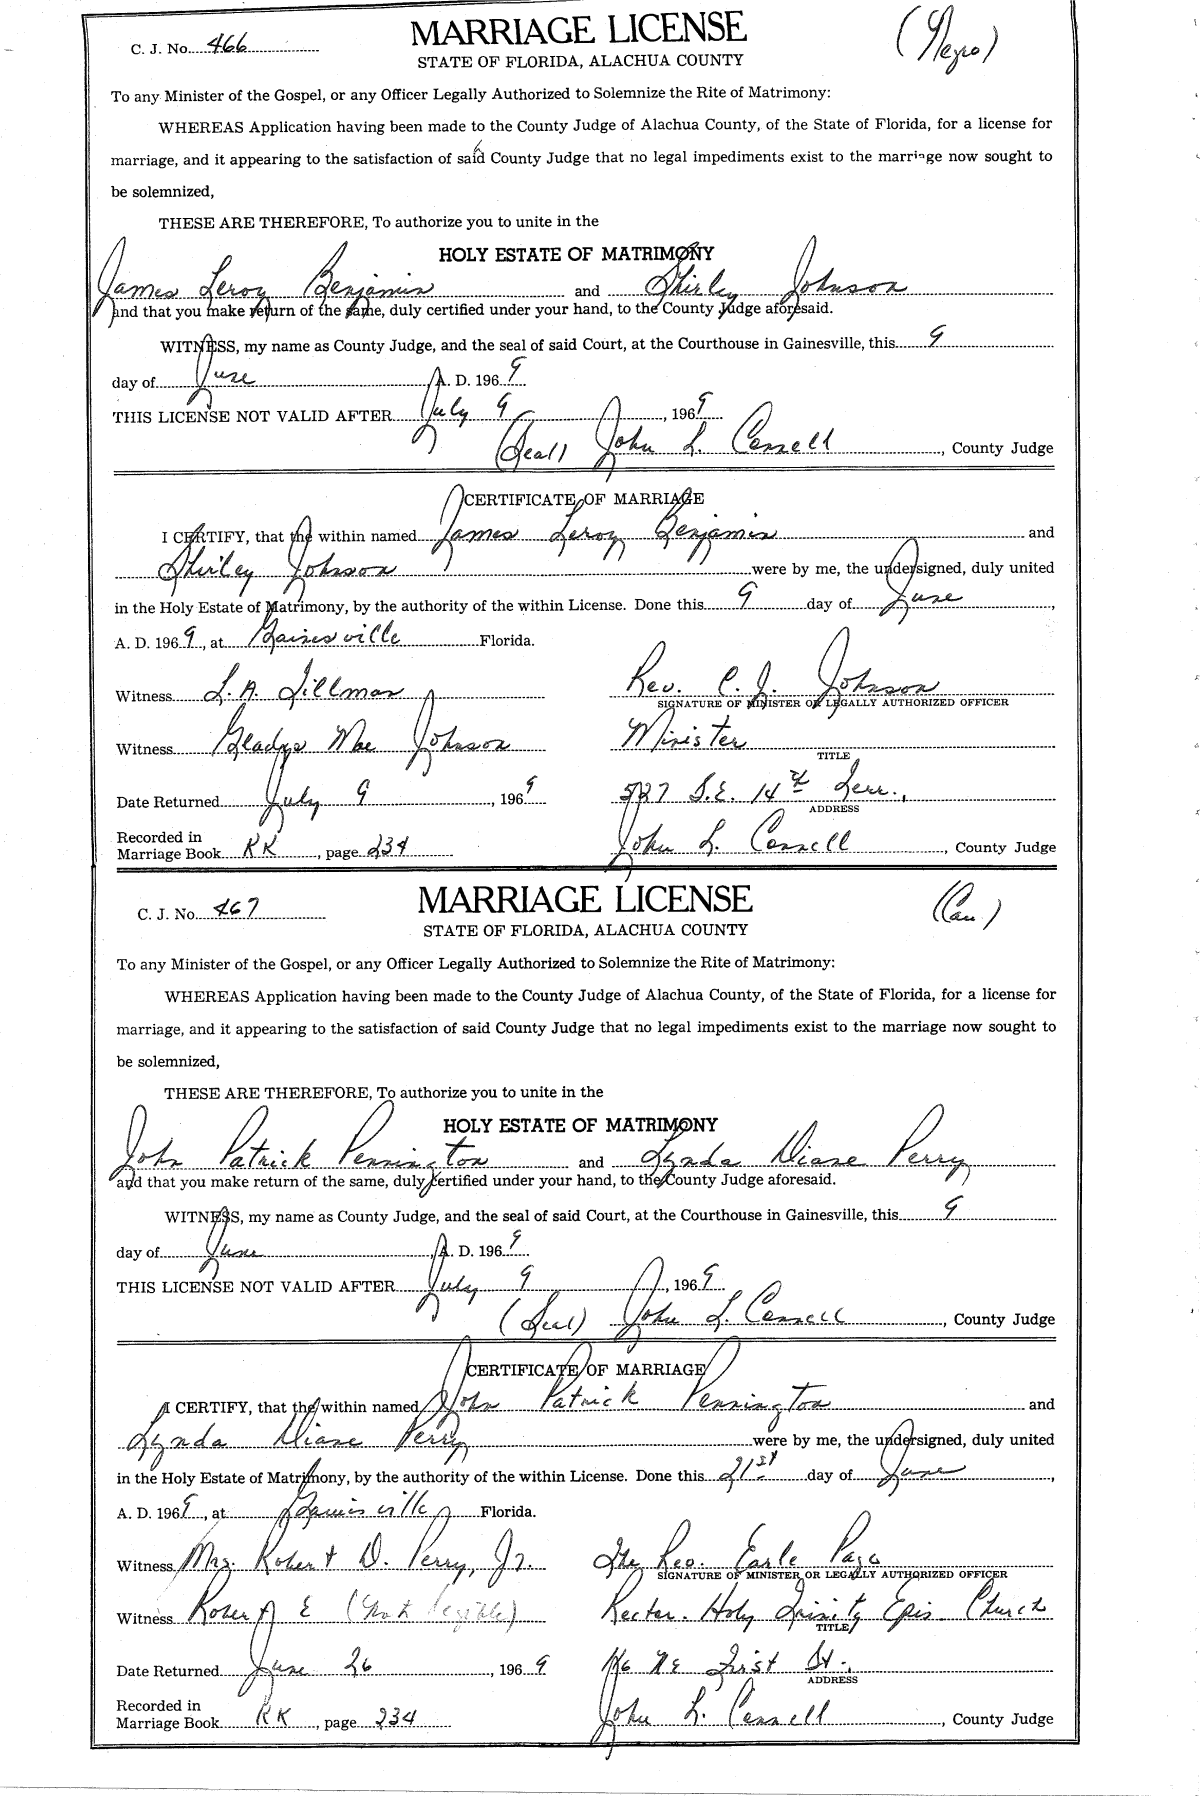 C. J. No. 466
MARRIAGE LICENSE
(Negro)
STATE OF FLORIDA, ALACHUA COUNTY
To any Minister of the Gospel, or any Officer Legally Authorized to Solemnize the Rite of Matrimony:
WHEREAS Application having been made to the County Judge of Alachua County, of the State of Florida, for a license for
marriage, and it appearing to the satisfaction of said County Judge that no legal impediments exist to the marriage now sought to
be solemnized,
THESE ARE THEREFORE, To authorize you to unite in the
HOLY ESTATE OF MATRIMONY
James Leroy Benjamin and Shirley Johnson
and that you make return of the same, duly certified under your hand, to the County Judge aforesaid.
WITNESS, my name as County Judge, and the seal of said Court, at the Courthouse in Gainesville, this 9
day of June A. D. 1969
THIS LICENSE NOT VALID AFTER July 9, 1969
(Seal) John L. Connell, County Judge
CERTIFICATE OF MARRIAGE
I CERTIFY, that the within named James Leroy Benjamin and
Shirley Johnson were by me, the undersigned, duly united
in the Holy Estate of Matrimony, by the authority of the within License. Done this 9 day of June,
A. D. 1969, at Gainesville Florida.
Witness L. A. Tillman Rev. C. J. Johnson
SIGNATURE OF MINISTER OR LEGALLY AUTHORIZED OFFICER
Witness Gladys Mae Johnson Minister
TITLE
Date Returned July 9, 1969 527 S.E. 14th Terr.,
ADDRESS
Recorded in
Marriage Book KK, page 234 John L. Connell, County Judge
C. J. No. 467
MARRIAGE LICENSE
(Cau.)
STATE OF FLORIDA, ALACHUA COUNTY
To any Minister of the Gospel, or any Officer Legally Authorized to Solemnize the Rite of Matrimony:
WHEREAS Application having been made to the County Judge of Alachua County, of the State of Florida, for a license for
marriage, and it appearing to the satisfaction of said County Judge that no legal impediments exist to the marriage now sought to
be solemnized,
THESE ARE THEREFORE, To authorize you to unite in the
HOLY ESTATE OF MATRIMONY
John Patrick Pennington and Lynda Diane Perry
and that you make return of the same, duly certified under your hand, to the County Judge aforesaid.
WITNESS, my name as County Judge, and the seal of said Court, at the Courthouse in Gainesville, this 9
day of June, A. D. 1969
THIS LICENSE NOT VALID AFTER July 9, 1969
(Seal) John L. Connell, County Judge
CERTIFICATE OF MARRIAGE
I CERTIFY, that the within named John Patrick Pennington and
Lynda Diane Perry were by me, the undersigned, duly united
in the Holy Estate of Matrimony, by the authority of the within License. Done this 21st day of June,
A. D. 1969, at Gainesville Florida.
Witness Mrs. Robert D. Perry, Jr. The Rev. Earle Page
SIGNATURE OF MINISTER OR LEGALLY AUTHORIZED OFFICER
Witness Robert E (Not legible) Rector. Holy Trinity Epis. Church
TITLE
Date Returned June 26, 1969 116 NE First St.,
ADDRESS
Recorded in
Marriage Book KK, page 234 John L. Connell, County Judge